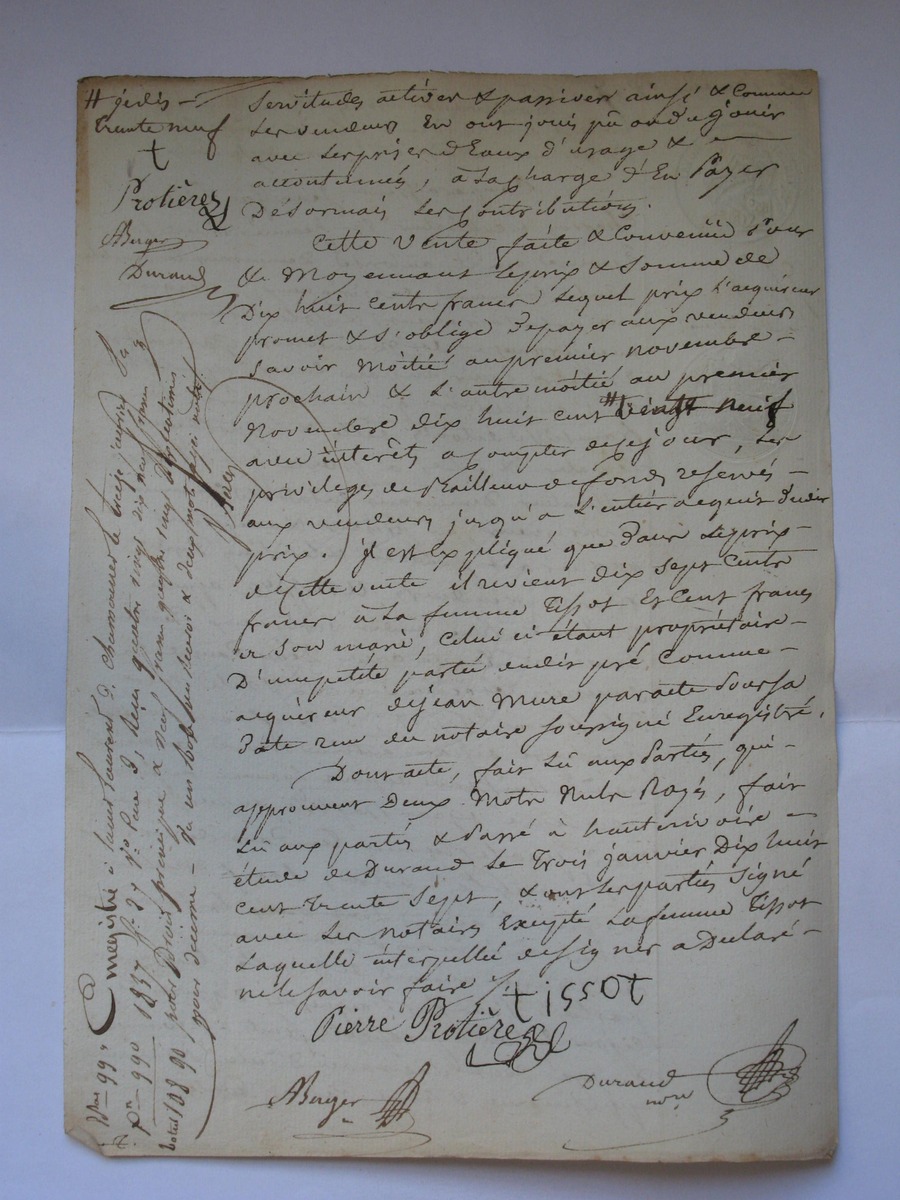 # je dis
trente neuf
+
Protière
ABerger
Durand
servitudes actives & passives ainsi & comme
les vendeurs en ont joui pû ou dû jouir
avec les prises d'Eaux d'usage &
accoutumés, à la charge d'En Payer
Désormais les Contributions.
Cette vente faite & Convenüe Pour
& Moyennant le prix & Somme de
Dix huit cents francs lequel prix l'acquéreur
promet & s'oblige De payer aux vendeurs
savoir moitié au premier novembre
prochain & l'autre moitié au premier
Novembre dix huit cent # vingt neuf
avec intérêts à compter de ce jour, les
privilèges de Bailleur de fonds réservés
aux vendeurs jusqu'à l'entier acquit dudit
prix. il est Expliqué que Dans le prix
de cette vente il revient dix sept Cents
francs à la femme Tissot Et Cent francs
à Son mari, Celui ci étant propriétaire
D'une petite partie dudit pré Comme
acquéreur de jean Mure par acte Sous sa
Date reçu du notaire soussigné Enregistré.
Dont acte, fait lû aux Parties, qui
approuvent Deux Mots Nuls Rayés, fait
lû aux parties & Passé à hauterivoire
étude de Durand Le Trois janvier Dix huit
Cent trente Sept, & ont les parties Signé
avec les notaires Excepté la femme Tissot
Laquelle interpellée de signer a Déclaré
ne le savoir faire.
tissot
Pierre Protière
ABerger
Durand
nore
Enregistré à Saint Laurent D. Chamousset le treize janvier
1837 f. 27 Ro Case 3, Reçu quatre vingt dix neuf francs
pour Droit principal & neuf francs quatre vingt dix centimes
pour décime
Vte 99 "
De 9 90
Total 108 90